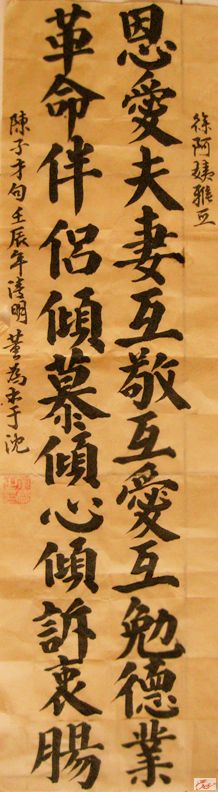 徐阿姨雅正
恩愛夫妻互敬互愛互勉德業
革命伴侶傾慕傾心傾訴衷腸
陳子才句壬辰年清明董為水于沈